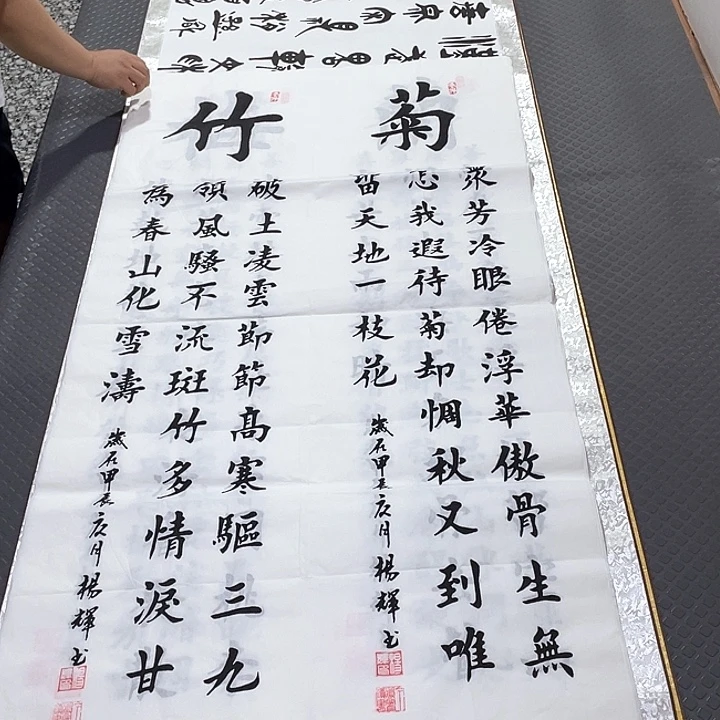 菊
衆芳冷眼倦浮華傲骨生無
忘我遐待菊却惆秋又到唯
留天地一枝花
歲在甲辰庚月楊輝书
竹
破土凌雲節節高寒驅三九
領風騷不流斑竹多情淚甘
為春山化雪濤
歲在甲辰庚月楊輝书